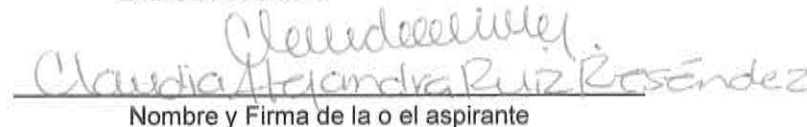 Claudia Alejandra Ruiz Reséndez
Nombre y Firma de la o el aspirante